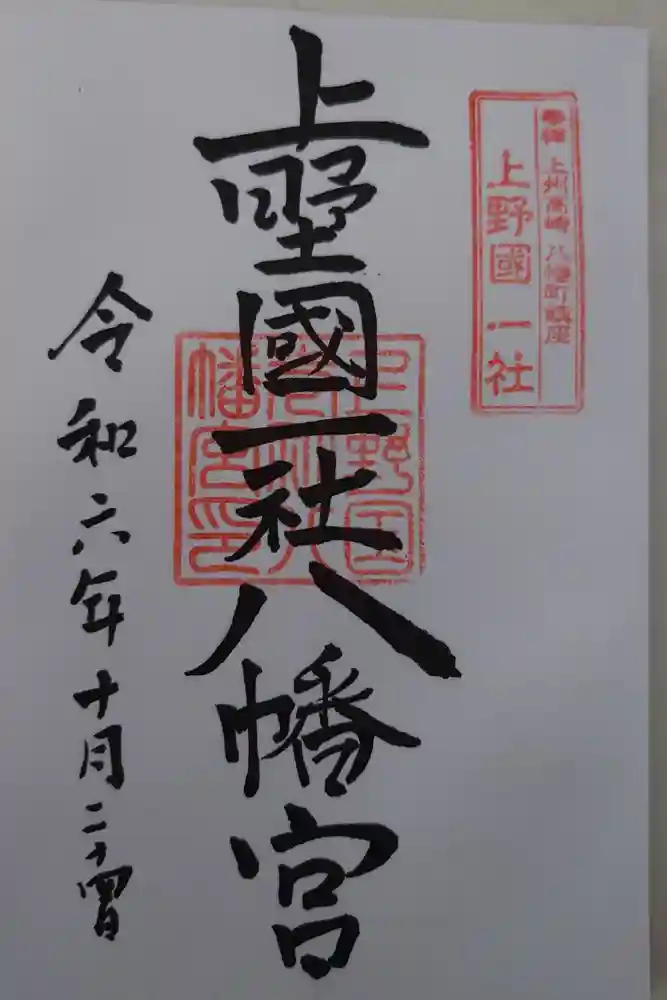 奉拝 上州高崎 八幡町鎮座
上野國 一社
上野國一社八幡宮
上野国一社八幡宮印
令和六年十月二十四日